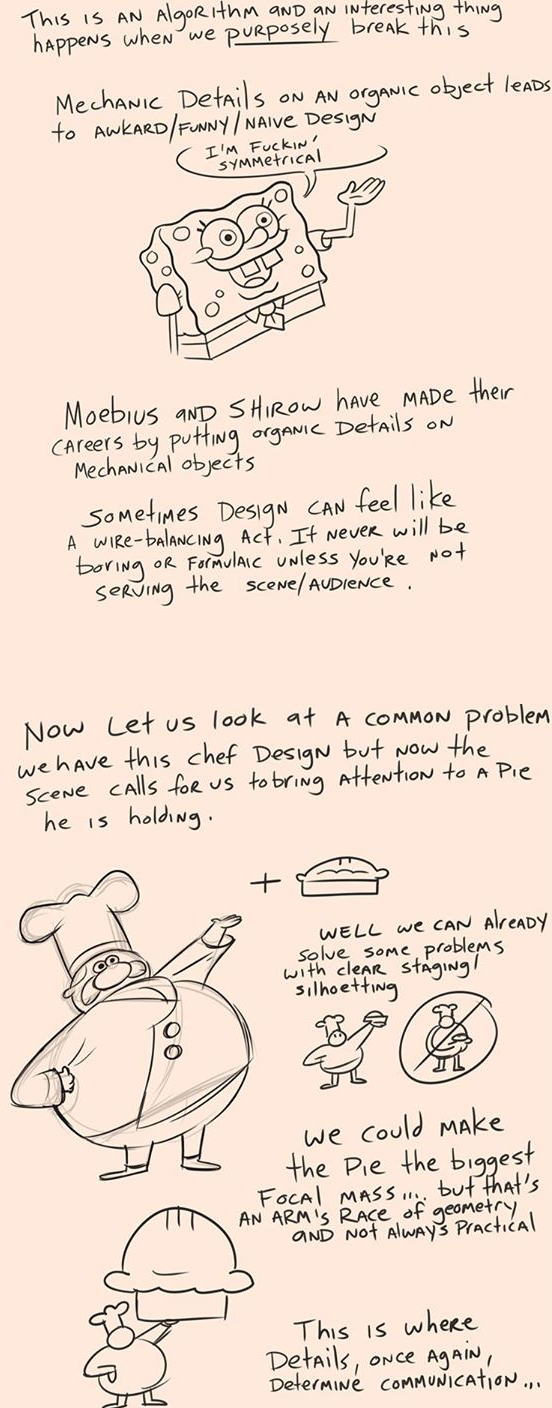 This is an algorithm and an interesting thing
happens when we purposely break this
Mechanic Details on an organic object leads
to awkard/funny/naive Design
I'm Fuckin'
symmetrical
Moebius and Shirow have made their
careers by putting organic Details on
Mechanical objects
Sometimes Design can feel like
a wire-balancing act. It never will be
boring or formulaic unless you're not
serving the scene/audience.
Now Let us look at a common problem
we have this chef Design but now the
scene calls for us to bring attention to a Pie
he is holding.
+
Well we can already
solve some problems
with clear staging/
silhoetting
We could make
the Pie the biggest
Focal mass.... but that's
an arm's race of geometry
and not always practical
This is where
Details, once again,
Determine communication...